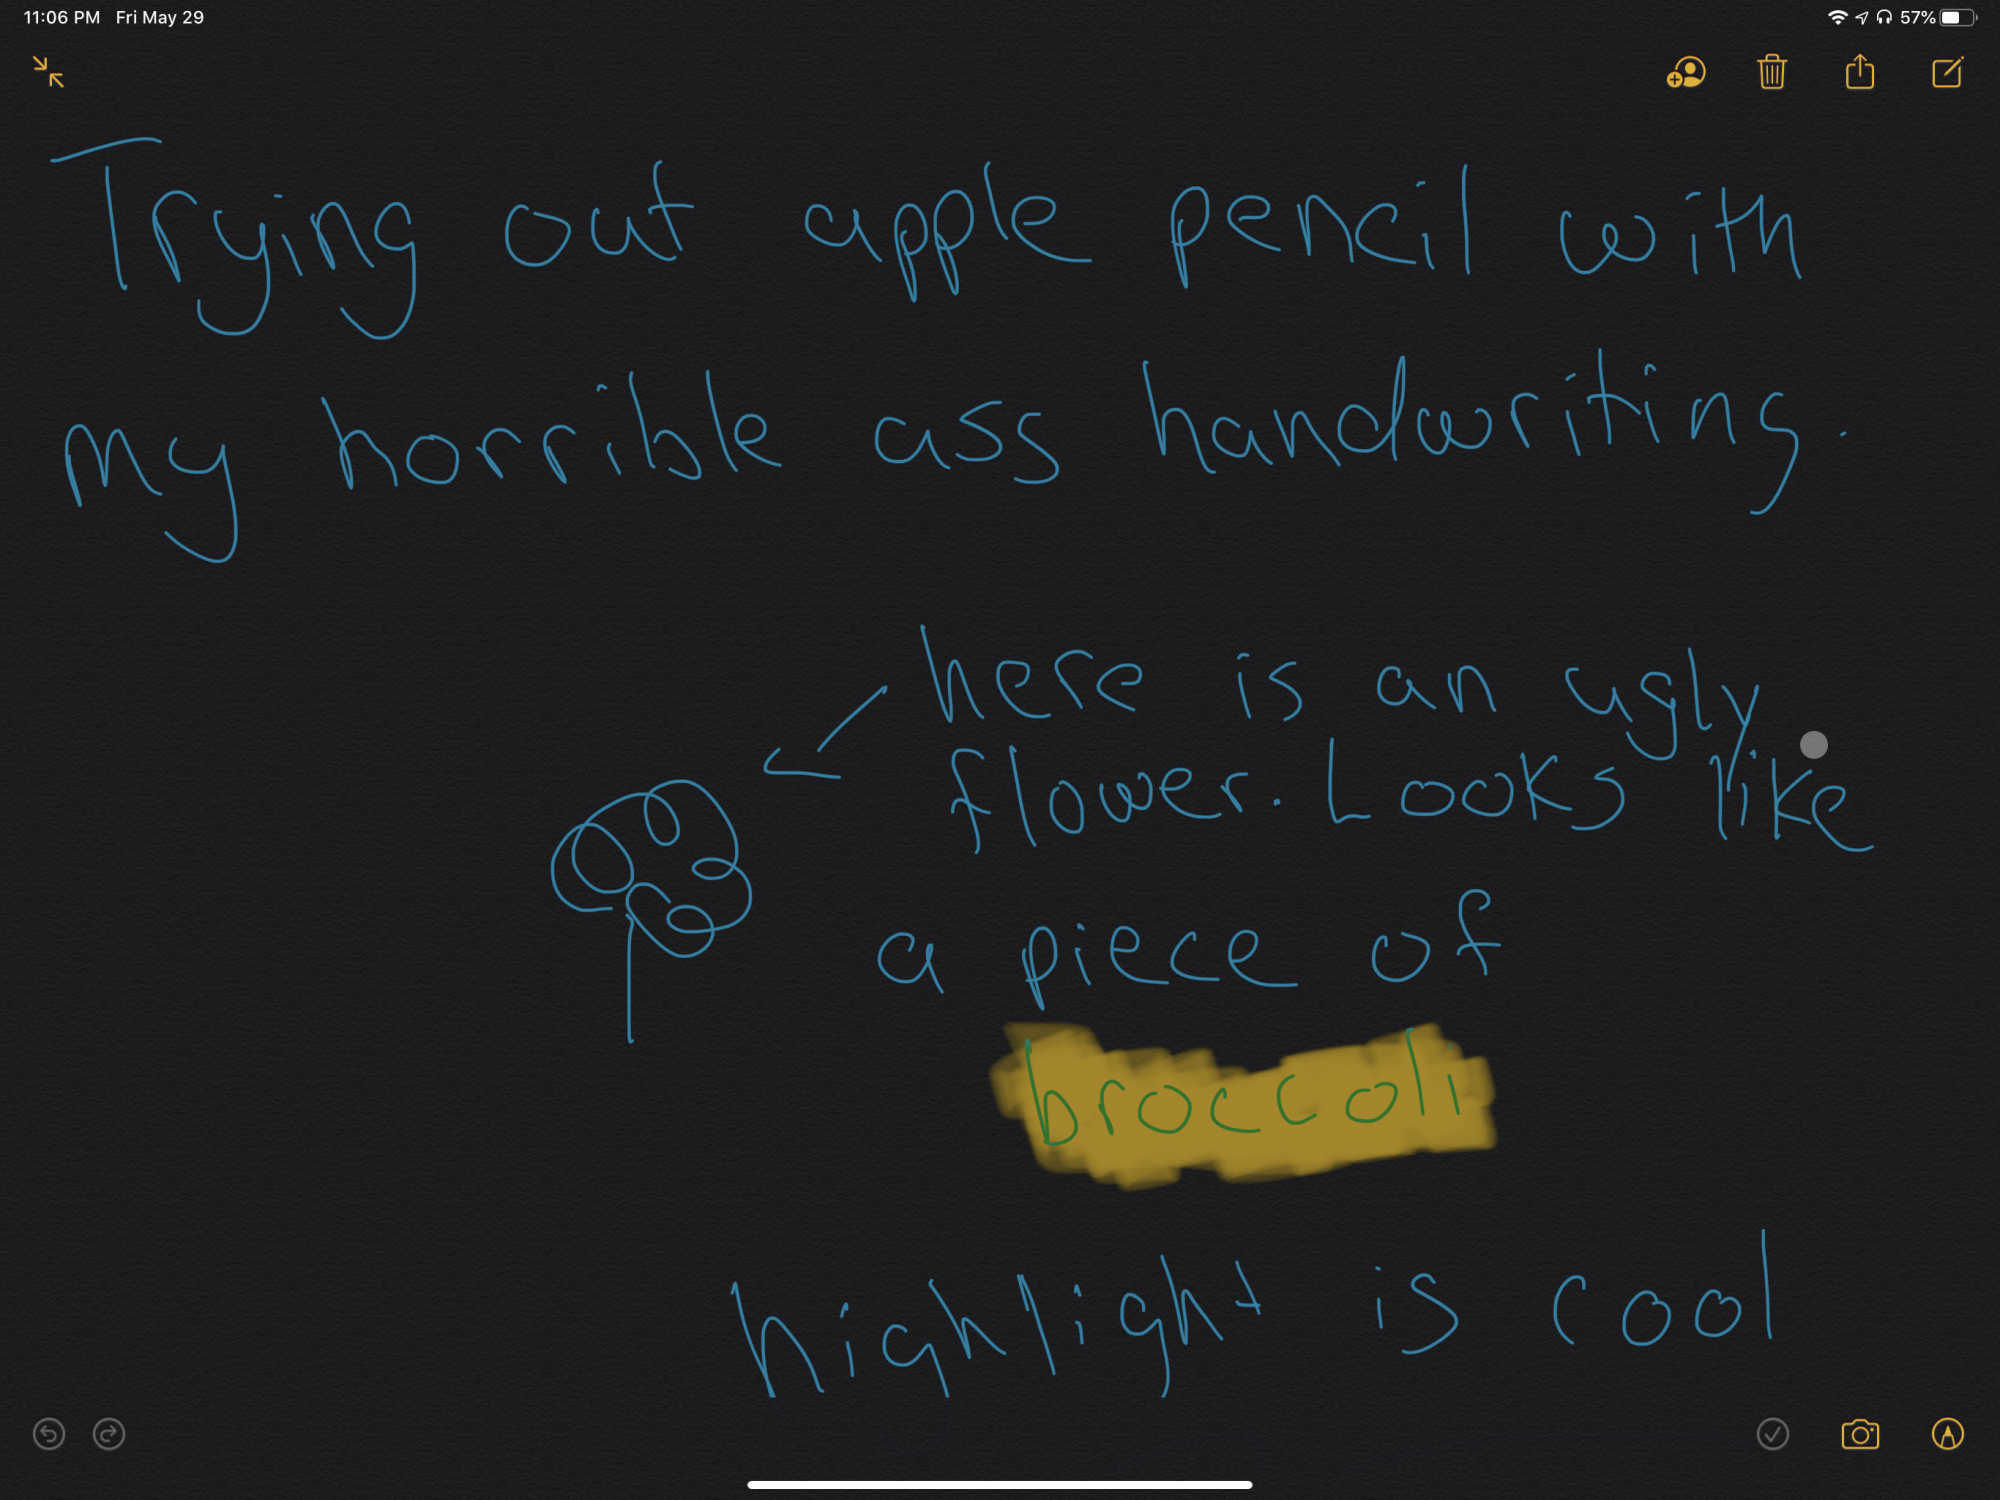 11:06 PM Fri May 29 57%
Trying out apple pencil with
my horrible ass handwriting.
here is an ugly
flower. Looks like
a piece of
broccoli
highlight is cool